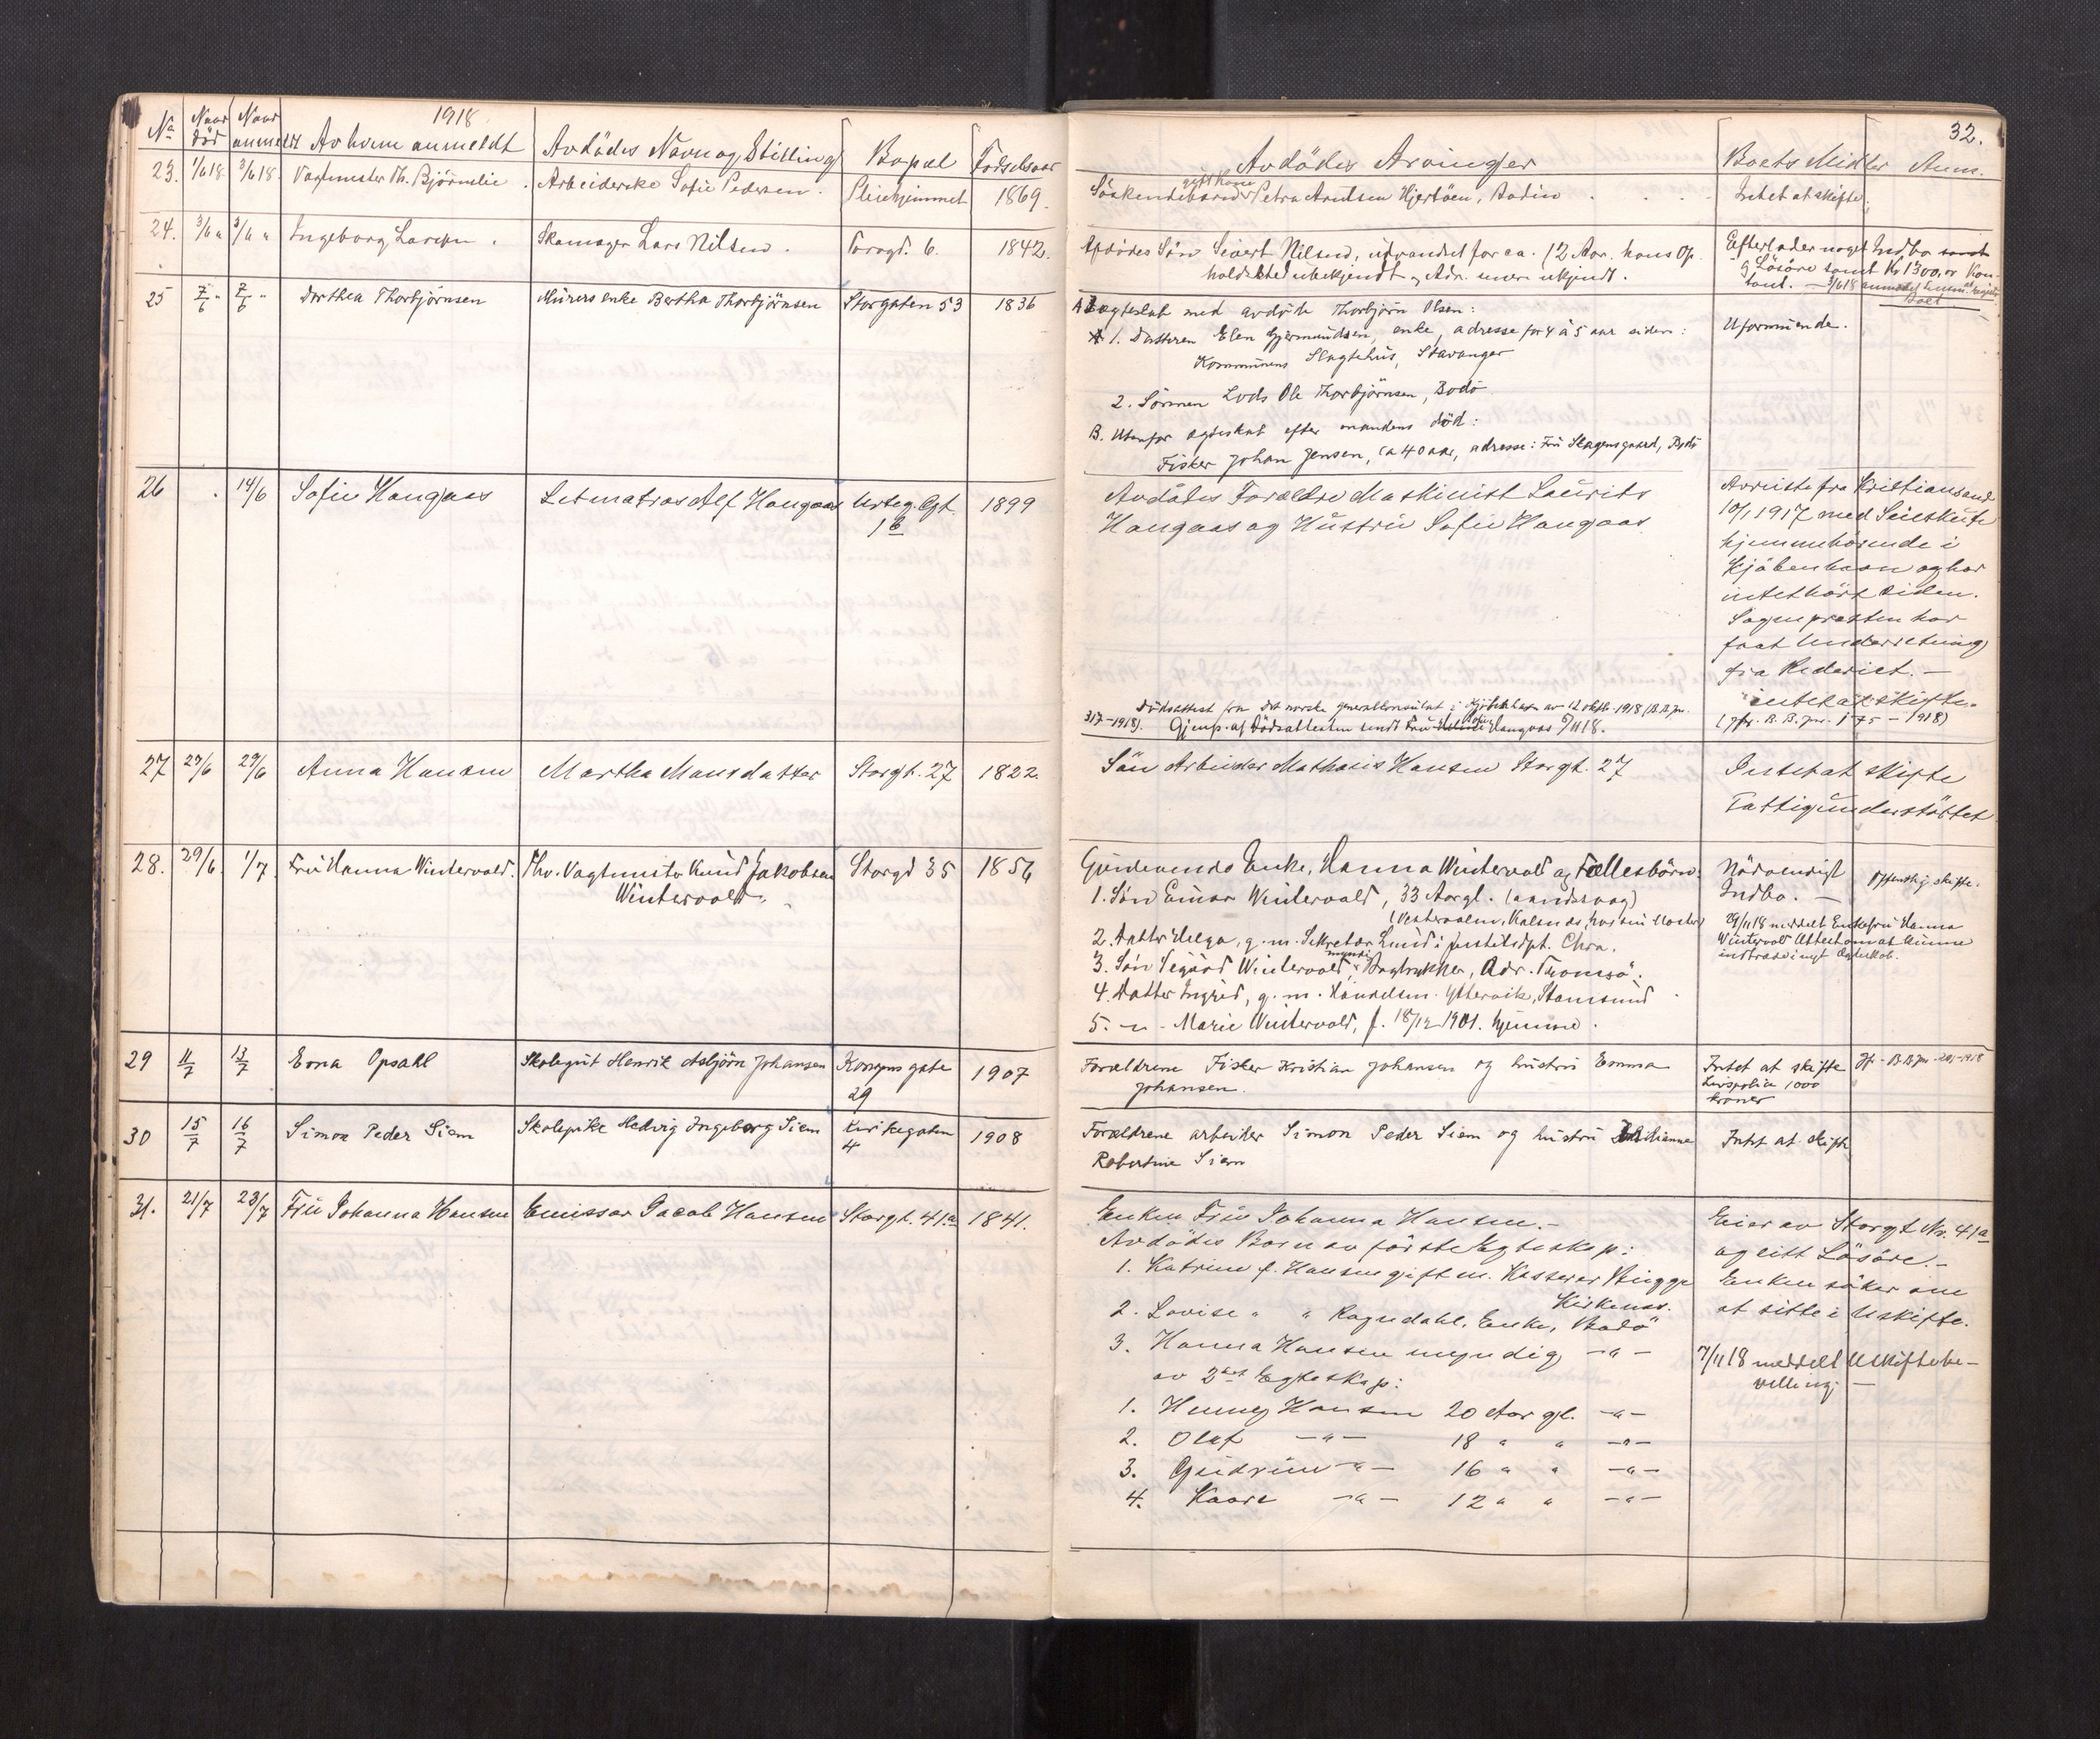 1918
No Naar död Naar anmeldt Av hvem anmeldt Avdödes Navn og Stilling Bopæl Födselsaar
23. 1/6 18 3/6 18 Vagtmester Th. Björnslie. Arbeiderske Sofie Pedersen. Pleiehjemmet 1869.
24. 3/6 " 3/6 " Ingeborg Larsen. Skomager Lars Nilsen. Torvgt. 6. 1842.
25 7/6 " 7/6 " Dorthea Thorbjörnsen Murers enke Bertha Thorbjörnsen Storgaten 53 1836
26 . 14/6 Sofie Haugaas Letmatros Alf Haugaas
1899
27 29/6 29/6 Anna Hansen Martha Mansdatter Storgt. 27 1822.
28. 29/6 1/7 Fru Hanna Wintervold. Fhv. Vagtmester Knud Jakobsen Storgt 35 1856
Wintervold.
29 11/7 13/7 Erna Opsahl Skolegut Henrik Asbjörn Johansen Kongens gate 1907
29
30 15/7 16/7 Simon Peder Siem Skolepike Hedvig Ingeborg Siem Kirkegaten 1908
4
31. 21/7 23/7 Fru Johanna Hansen Emissær Jacob Hansen Storgt. 41.a 1841.
32.
Avdödes Arvinger Boets Midler Anm.
gift Kone
Söskendebarn Petra Arntsen Hjertöen, Bodin Intet at skifte.
Afdödes Sön Sivert Nilsen, utvandret for ca. 12 Aar. hans Op-
holdssted ubekjendt og Adr. ukjendt.
Efterlader noget Indbo samt
Lösöre samt Kr 1300,00 Kon-
tant. - 3/6 18 anmeldt
Boet
A I egteskab med avdöde Thorbjörn Olsen:
1. Datteren Elen Gjermundsen, enke, adresse for 4 à 5 aar siden:
Kommunens Slagtehus, Stavanger
Uformuende.
2. Sönnen Lods Ole Thorbjörnsen, Bodö
B. Utenfor egteskab efter mandens död:
Fisker Johan Jensen, ca 40 aar, adresse: Fru Skagensgaard, Bodö
Avdödes Forældre Maskinist Laurits
Haugaas og Hustru Sofie Haugaas
Avreiste fra Kristiansand
10/1 1917 med Seilskute
hjemmehörende i
Kjöbenhavn og har
intet hört siden.
Sognepresten har
faat Underretning
fra Rederiet. -
intet at skifte.
(jfr. B. B. jnr. 175 - 1918)
Dödsattest fra det norske generalkonsulat i Kjöbenhavn av 12 oktb. 1918 (B.B. jnr.
317-1918). Gjenp. af Dödsattesten sendt Fru Sofie Haugaas 5/11 18.
Sön Arbeider Mathæis Hansen Storgt. 27
Intet at skifte
Fattigunderstöttet
Gjenlevende Enke, Hanna Wintervold og Fællesbörn:
1. Sön Einar Wintervold, 33 Aar gl. (aandssvag)
2. Datter Helga, g.m. Sekretær Lund i Justitsdpt. Chra.
myndig
3. Sön Sigurd Wintervold, Bogtrykker, Adr. Tromsö.
4. Datter Ingrid, g.m. Handelsm. Yttervik, Stamsund
5. - " - Marie Wintervold, f. 18/12 1901. hjemme.
Nödvendigt
Indbo. -
Offentlig skifte.
29/11 18 meddelt Enkefru Hanna
Wintervold Attest om at kunne
indtræde i nyt Egteskab.
Forældrene Fisker Kristian Johansen og hustru Emma
Johansen.
Intet at skifte
Livspolice 1000
kroner
Jfr. B.B. jnr. 201-1918
Forældrene arbeider Simon Peder Siem og hustru
Robertine Siem
Intet at skifte
Enken Fru Johanna Hansen. -
Avdödes Börn av förste Egteskap:
1. Katrine f. Hansen gift m. Kasserer Brügge
Kirkenes.
2. Lovise " " Rogndahl, Enke, Bodö
3. Hanna Hansen myndig - " -
av 2det Egteskap:
1. Henny Hansen 20 Aar gl. - " -
2. Olaf - " - 18 " " - " -
3. Gudrun - " - 16 " " - " -
4. Kaare - " - 12 " " - " -
Eier av Storgt No. 41a
og litt Lösöre. -
Enken söker om
at sitte i Uskifte.
7/11 18 meddelt Uskiftebe-
villing. -